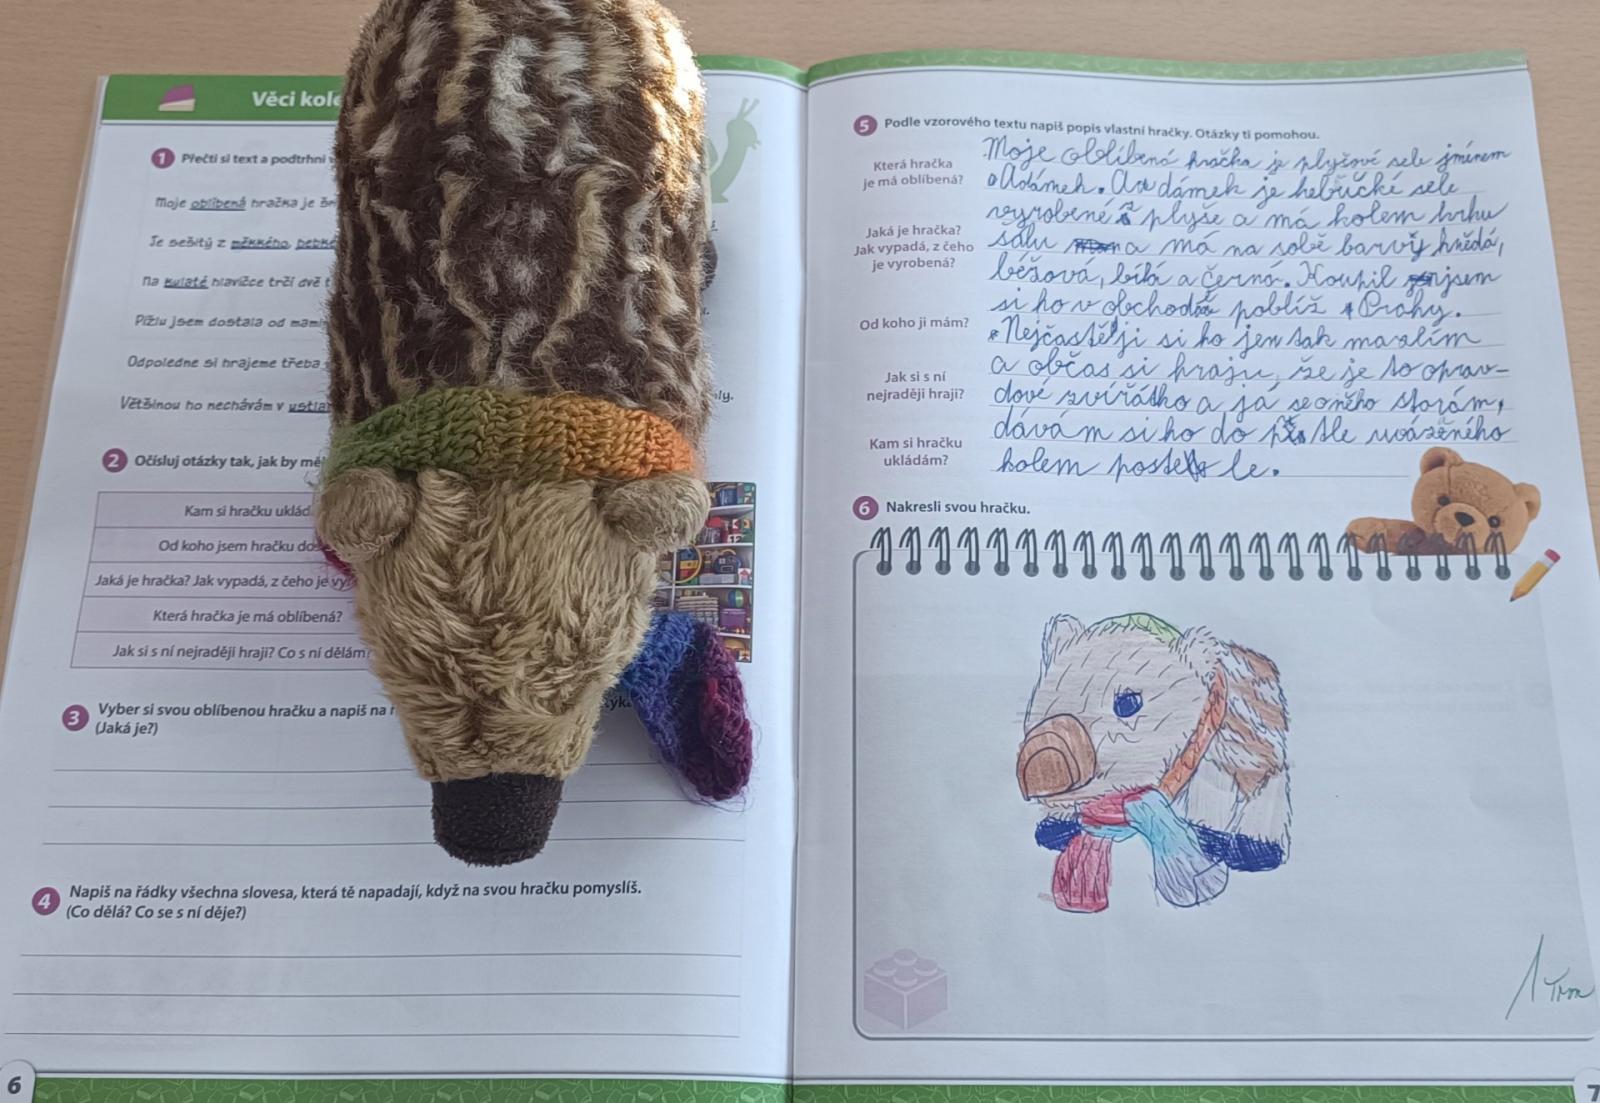 Věci kole
1 Přečti si text a podtrhni
Moje oblíbená hračka je
Je sešitý z měkkého,
Na kulaté hlavičce trčí dvě
Pížlu jsem dostala od
Odpoledne si hrajeme třeba
Většinou ho nechávám v
2 Očísluj otázky tak, jak by
Kam si hračku uklád
Od koho jsem hračku
Jaká je hračka? Jak vypadá, z čeho je
Která hračka je má oblíbená?
Jak si s ní nejraději hraji? Co s ní dělám?
3 Vyber si svou oblíbenou hračku a napiš na
(Jaká je?)
4 Napiš na řádky všechna slovesa, která tě napadají, když na svou hračku pomyslíš.
(Co dělá? Co se s ní děje?)
6
5 Podle vzorového textu napiš popis vlastní hračky. Otázky ti pomohou.
Která hračka
je má oblíbená?
Jaká je hračka?
Jak vypadá, z čeho
je vyrobená?
Od koho ji mám?
Jak si s ní
nejraději hraji?
Kam si hračku
ukládám?
Moje oblíbená hračka je plyšové sele jménem
Adámek. Adámek je hebučké sele
vyrobené z plyše a má kolem krku
šálu a má na sobě barvy hnědá,
béžová, bílá a černá. Koupil jsem
si ho v obchodě poblíž Prahy.
Nejčastěji si ho jen tak mazlím
a občas si hraju, že je to oprav-
dové zvířátko a já se o něho starám,
dávám si ho do
kolem postele.
6 Nakresli svou hračku.
1
7